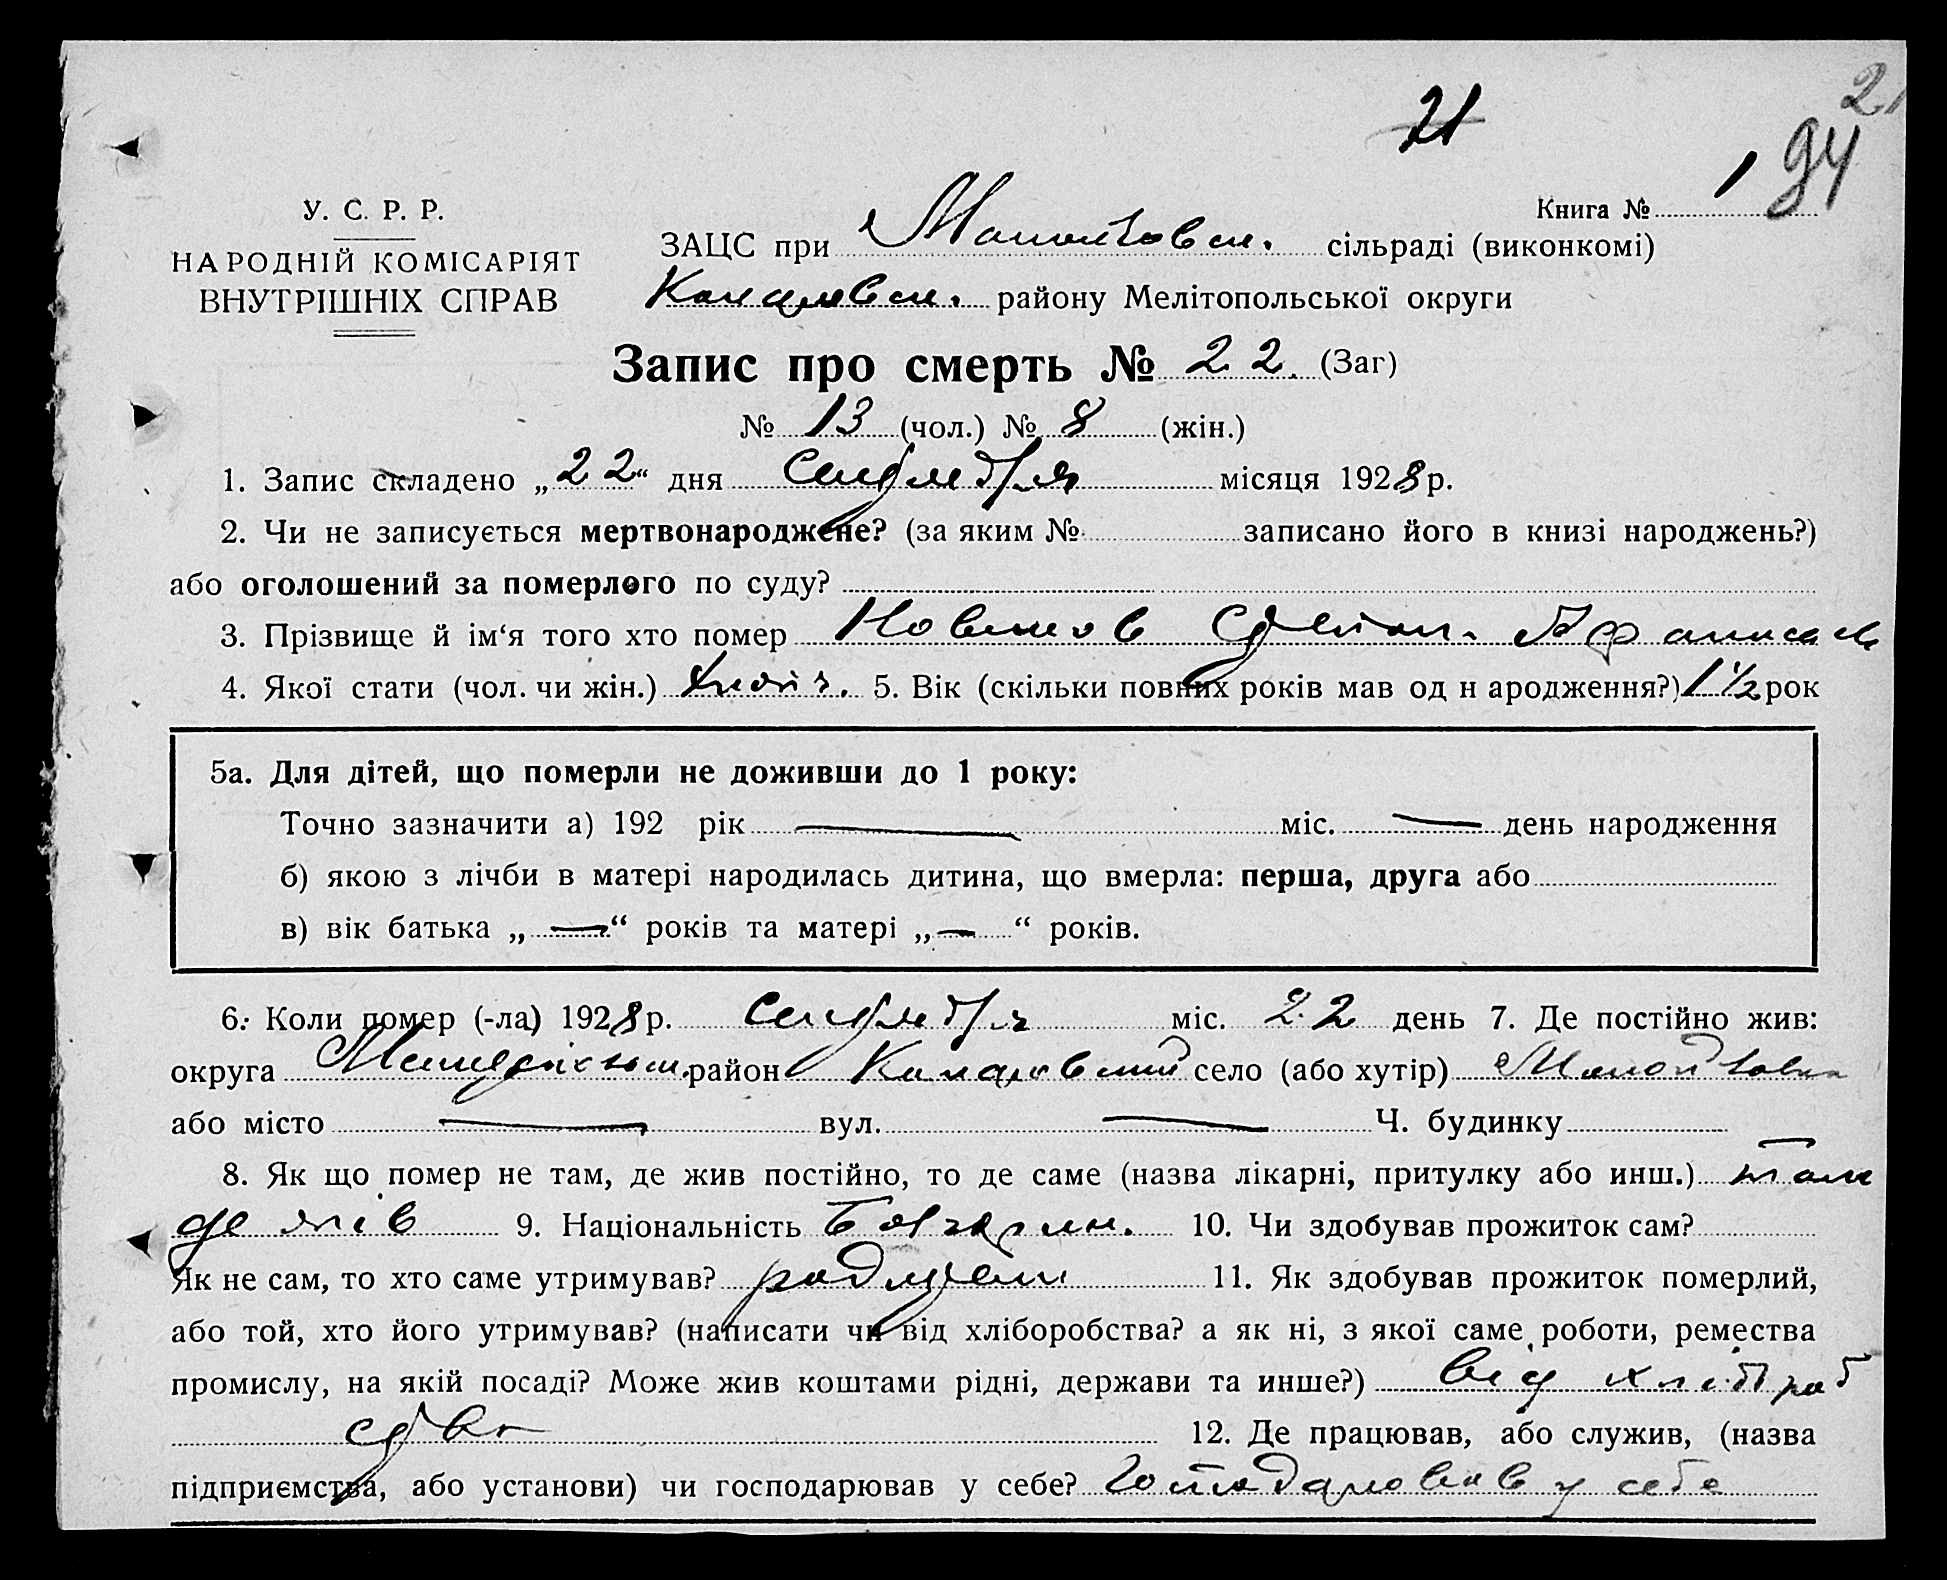 21
21
94
У. С. Р. Р.
НАРОДНІЙ КОМІСАРІЯТ
ВНУТРІШНІХ СПРАВ
Книга № 1
ЗАЦС при сільраді (виконкомі)
району Мелітопольської округи
Запис про смерть № 22. (Заг)
№ 13 (чол.) № 8 (жін.)
1. Запис складено „22“ дня місяця 1928 р.
2. Чи не записується мертвонароджене? (за яким № записано його в книзі народжень?)
або оголошений за померлого по суду?
3. Прізвище й ім‘я того хто помер Новиков Степан.
4. Якої стати (чол. чи жін.) 5. Вік (скільки повних років мав од н ародження?) 1 1/2 рок
5а. Для дітей, що померли не доживши до 1 року:
Точно зазначити а) 192 рік — міс. — день народження
б) якою з лічби в матері народилась дитина, що вмерла: перша, друга або
в) вік батька „—“ років та матері „—“ років.
6. Коли помер (-ла) 1928 р. міс. 22 день 7. Де постійно жив:
округа район село (або хутір)
або місто — вул. — Ч. будинку —
8. Як що помер не там, де жив постійно, то де саме (назва лікарні, притулку або инш.) там
де жив 9. Національність Болгарин. 10. Чи здобував прожиток сам?
Як не сам, то хто саме утримував? родители 11. Як здобував прожиток померлий,
або той, хто його утримував? (написати чи від хліборобства? а як ні, з якої саме роботи, ремества
промислу, на якій посаді? Може жив коштами рідні, держави та инше?) від хлібороб
ства 12. Де працював, або служив, (назва
підприємства, або установи) чи господарював у себе? Господарював у себе